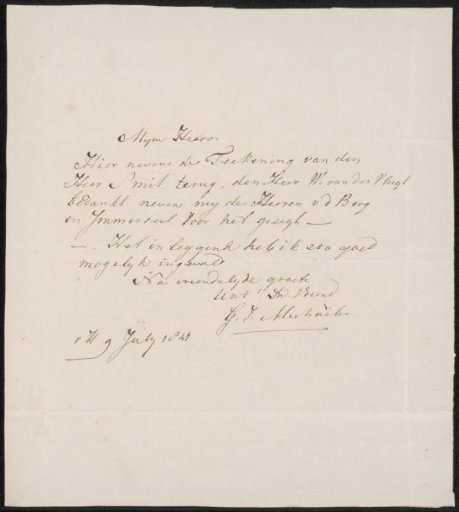 Myne Heeren
Hier nevens de Teekening van den
Heer Smit terug, den Heer W. van der Vlugt
bedankt nevens my de Heeren v d Berg
en Immerzeel voor het gezegh —
— . Het in leggend heb ik zoo goed
mogelyk ingevuld
Na vriendelyke groete
Uwe
G. J.
9 July